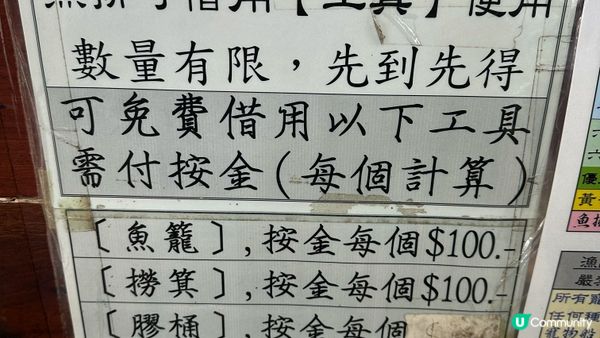 魚排可借用【工具】使用
數量有限，先到先得
可免費借用以下工具
需付按金(每個計算)
〔魚籠〕,按金每個$100.-
〔撈箕〕,按金每個$100.-
〔膠桶〕,按金每個
優
黃
魚排
漁
嚴
所有籠
任何種
U Community